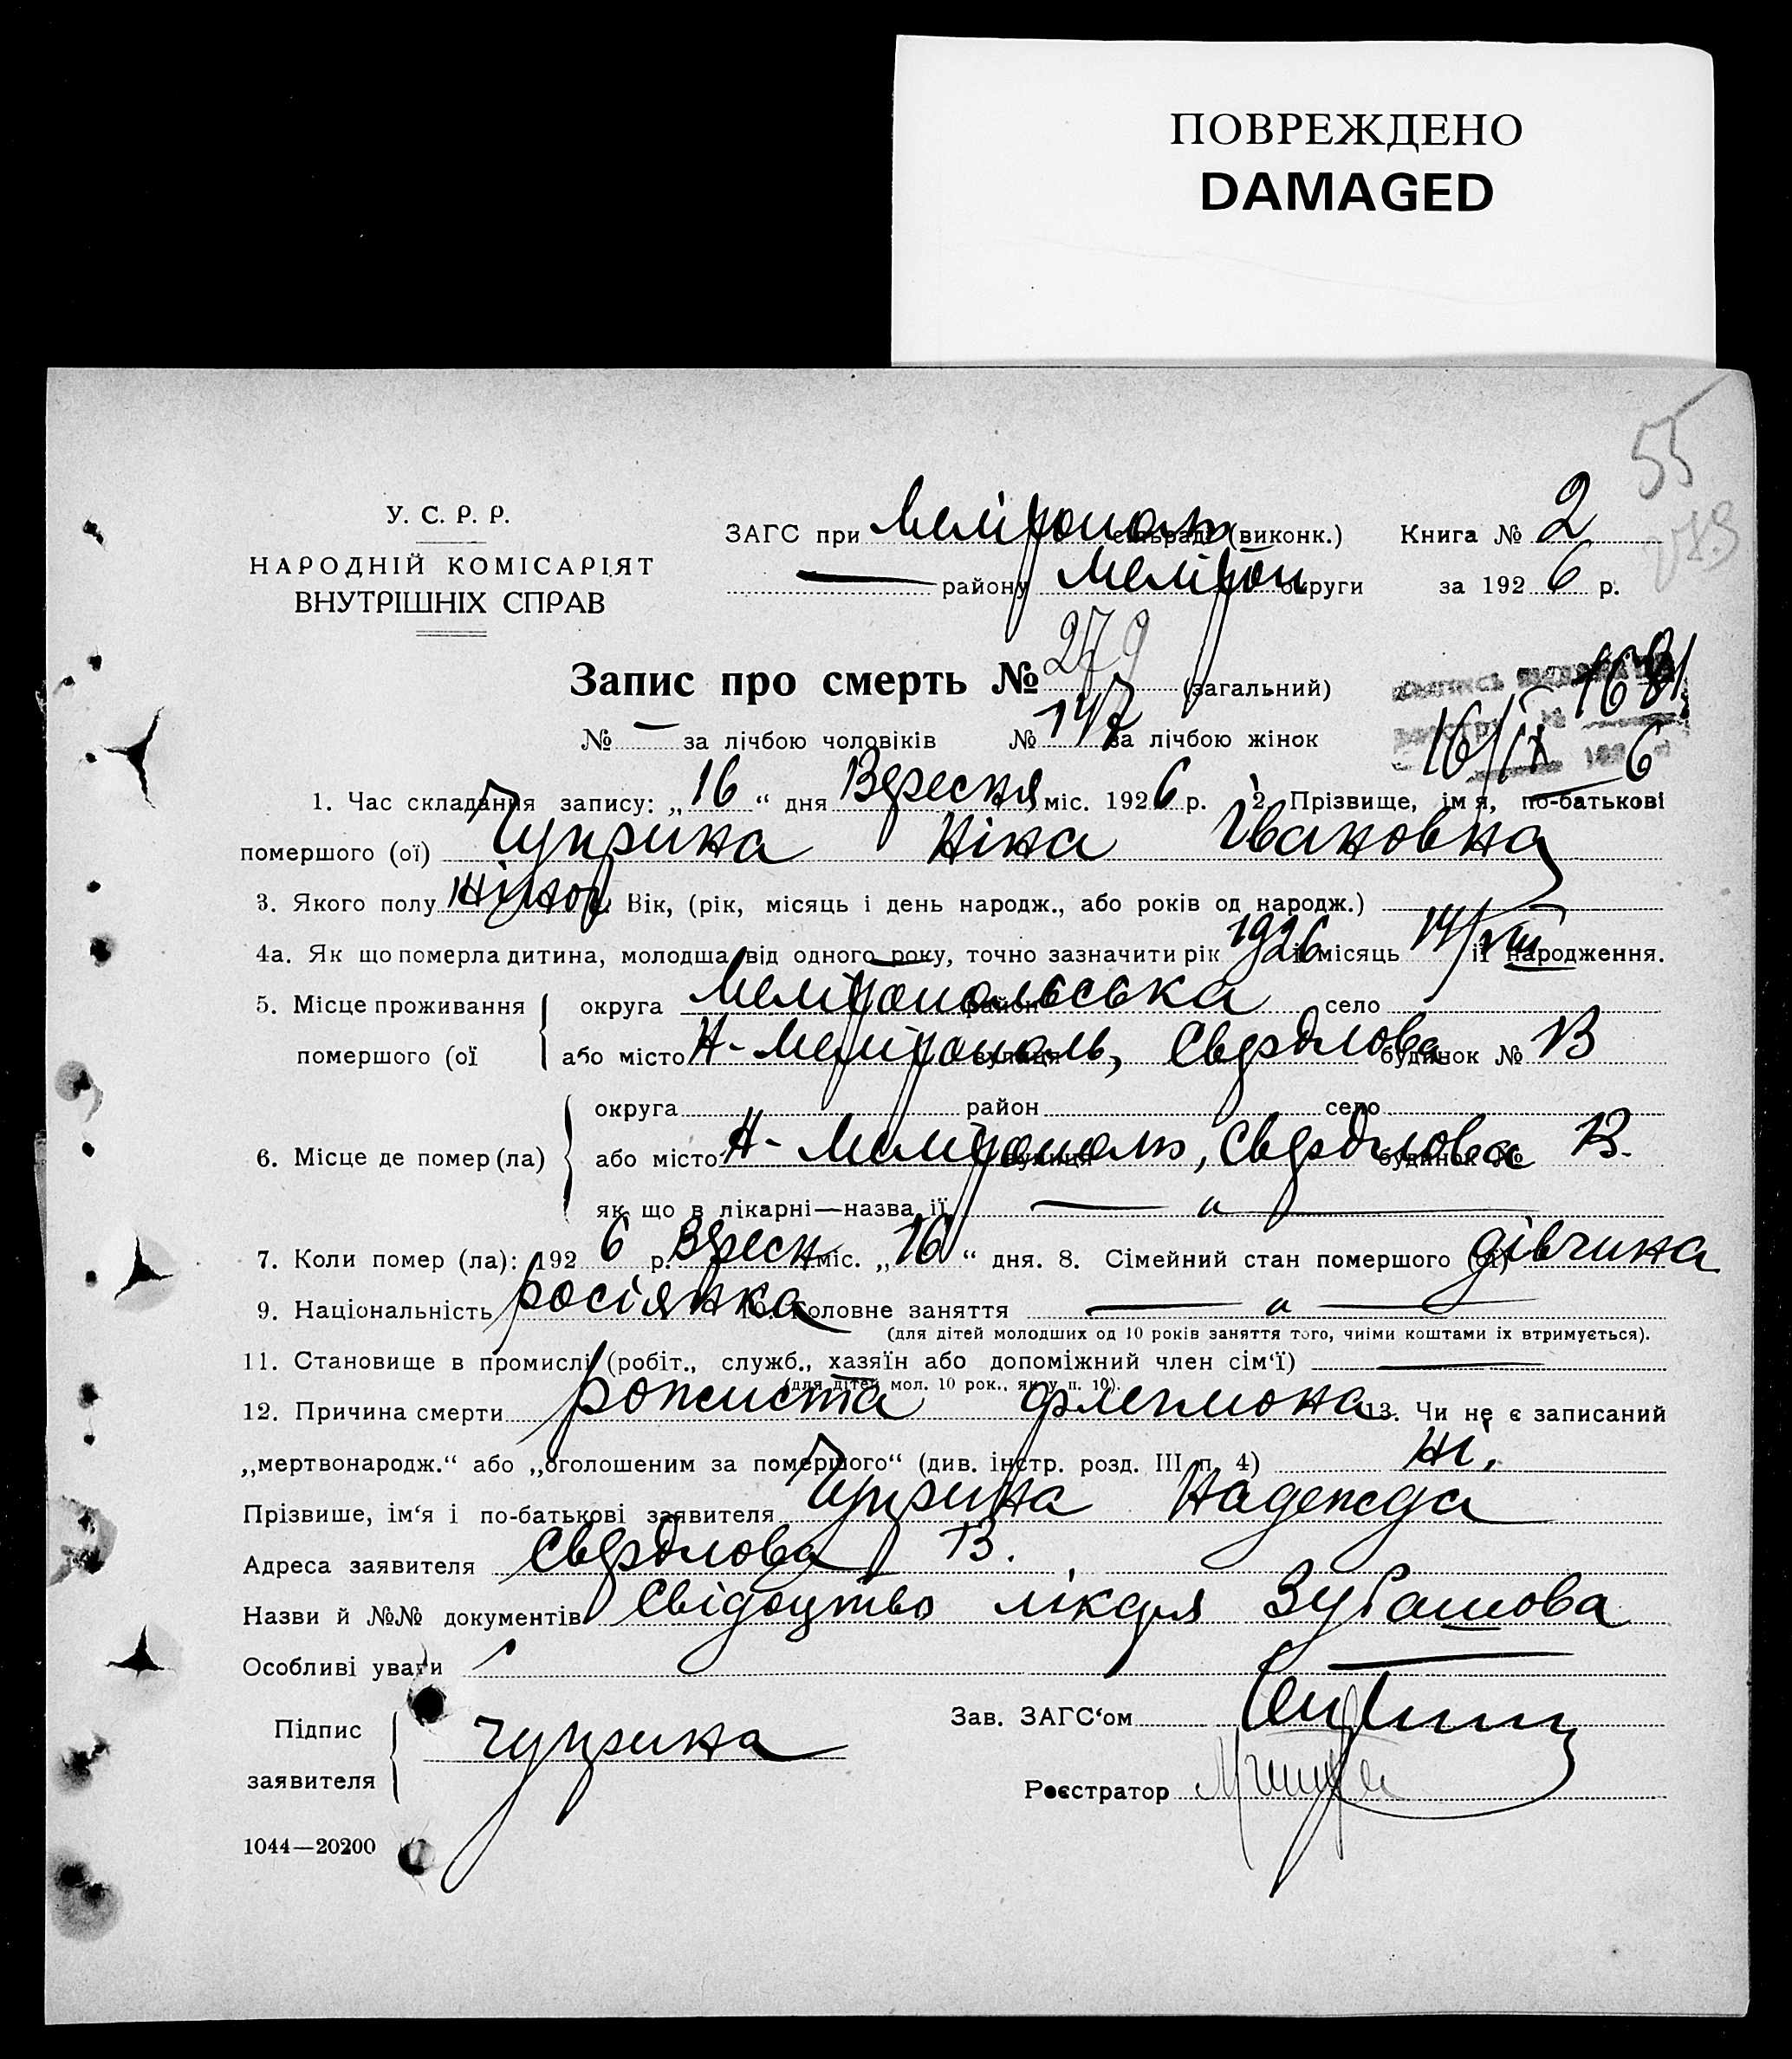 ПОВРЕЖДЕНО
DAMAGED
55
У. С. Р. Р.
НАРОДНІЙ КОМІСАРІЯТ
ВНУТРІШНІХ СПРАВ
ЗАГС при Меліτопол сільраді (виконк.) Книга № 2
— району Меліτоп округи за 1926 р.
Запис про смерть № 279 (загальний)
№ — за лічбою чоловіків № 147 за лічбою жінок
1681
16/IX 6
1. Час складання запису: „16“ дня Вересня міс. 1926 р. 2. Прізвище, імя, по-батькові
помершого (ої) Чуприна Ніна Івановна
3. Якого полу жіноч Вік, (рік, місяць і день народж., або років од народж.)
4а. Як що померла дитина, молодша від одного року, точно зазначити рік 1926 і місяць 14/VIII її народження.
5. Місце проживання округа Мелітопольська район село
помершого (ої або місто Н-Мелітополь, вулиця Свердлова будинок № 13
округа район село
6. Місце де помер (ла) або місто Н-Мелітополь, вулиця Свердлова будинок № 13.
як що в лікарні—назва її — „ —
7. Коли помер (ла): 1926 р. Вересн міс. „16“ дня. 8. Сімейний стан помершого (ої) дівчина
9. Національність росіянка 10. Головне заняття — „ —
(для дітей молодших од 10 років заняття того, чиїми коштами їх втримується).
11. Становище в промислі (робіт., служб., хазяїн або допоміжний член сім‘ї) —
(для дітей мол. 10 рок., як у п. 10).
12. Причина смерти рожиста флегмона 13. Чи не є записаний
„мертвонародж.“ або „оголошеним за помершого“ (див. інстр. розд. III п. 4) ні.
Прізвише, ім‘я і по-батькові заявителя Чуприна Надежда
Адреса заявителя Свердлова 13.
Назви й №№ документів Свідоцтво лікаря Зубашова
Особливі уваги
Підпис
заявителя Чуприна
Зав. ЗАГС‘ом
Реєстратор
1044—20200